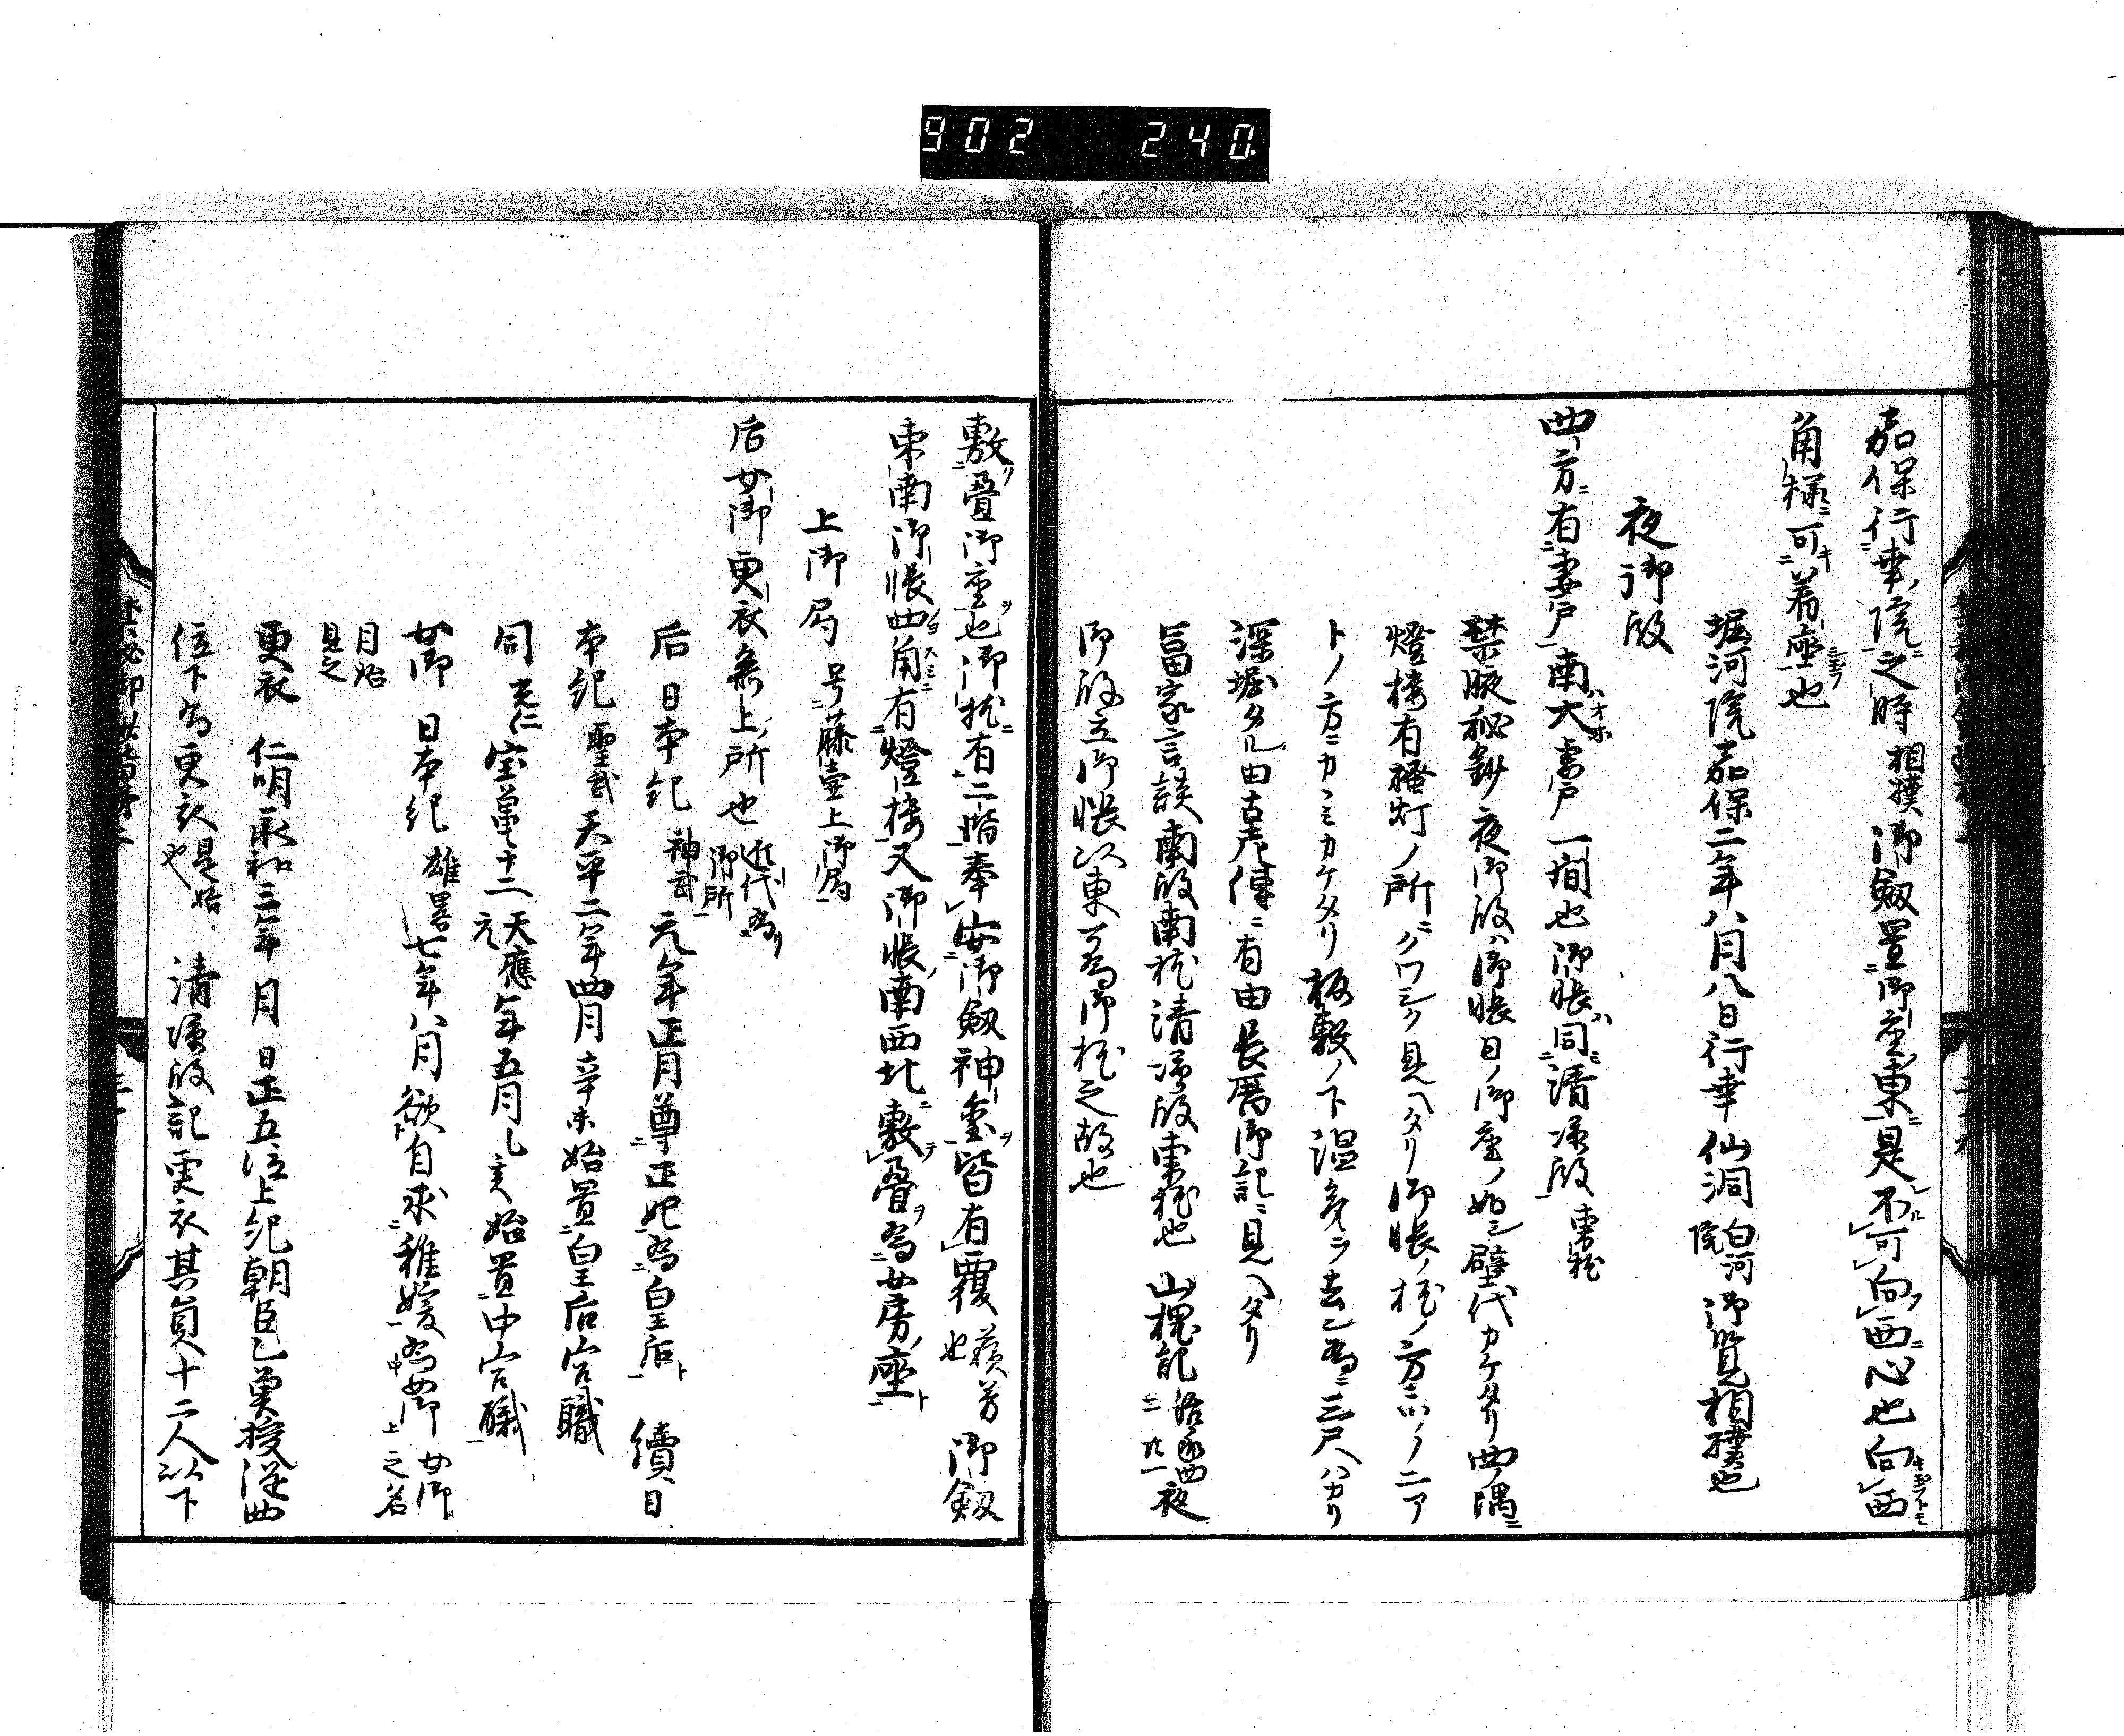 902 240
嘉保行幸院之時相撲御劔置御座東是不可向西心也向西
角様可着座也
堀河院嘉保二年八月八日行幸仙洞白河院御覧相撲也
夜御殿
四方有妻戸南大妻戸一間也御帳同清凉殿東枕
禁腋秘鈔夜御殿ハ御帳日ノ御座ノ如シ壁代カケタリ四ノ隅ニ
燈楼有掻灯ノ所ニクワシク見ヘタリ御帳ノ枕ノ方ニ
トノ方ニカヽミカケタリ板敷ノ下温気ヲ去ン為ニ三尺ハカリ
深堀タル由古老傳ニ有由長暦御記ニ見ヘタリ
冨家言談南殿南枕清凉殿東枕也山槐記治承四二廿一夜
御殿立御帳以東為御枕之故也
敷疊御座也御枕有二階奉安御劔神璽皆有覆蘇芳也御劔
東南御帳四角有燈楼又御帳南西北敷疊為女房座
上御局号藤壷上御局
后女御更衣參上所也近代為御所
后日本紀神武元年正月尊正妃為皇后續日
本紀聖武天平二年四月辛未始置皇后宮職
同光仁宝亀十二天應元年五月乙亥始置中宮職
女御日本紀雄畧七年八月欲自求稚媛為女御女御上之名
目始見之
更衣仁明承和三年月日正五位上紀朝臣乙魚授従四
位下為更衣是始也清凉殿記更衣其員十二人以下